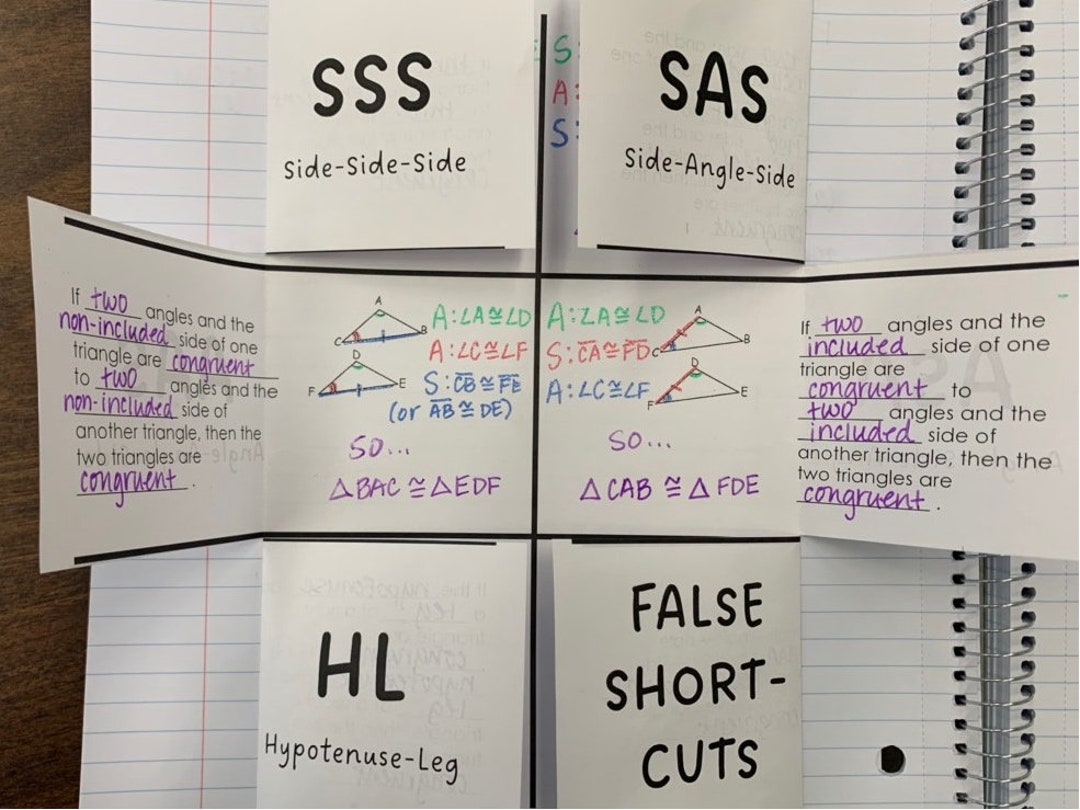 SSS
Side-Side-Side
S:
A:
S:
SAS
Side-Angle-Side
If two angles and the
non-included side of one
triangle are congruent
to two angles and the
non-included side of
another triangle, then the
two triangles are
congruent.
A
C
B
D
F
E
A:∠A≅∠D
A:∠C≅∠F
S:C̅B̅≅F̅E̅
(or A̅B̅≅DE)
SO...
△BAC≅△EDF
A:∠A≅∠D
S:C̅A̅≅F̅D̅
A:∠C≅∠F
A
C
B
D
F
E
SO...
△CAB≅△FDE
If two angles and the
included side of one
triangle are
congruent to
two angles and the
included side of
another triangle, then the
two triangles are
congruent.
HL
Hypotenuse-Leg
FALSE
SHORT-
CUTS